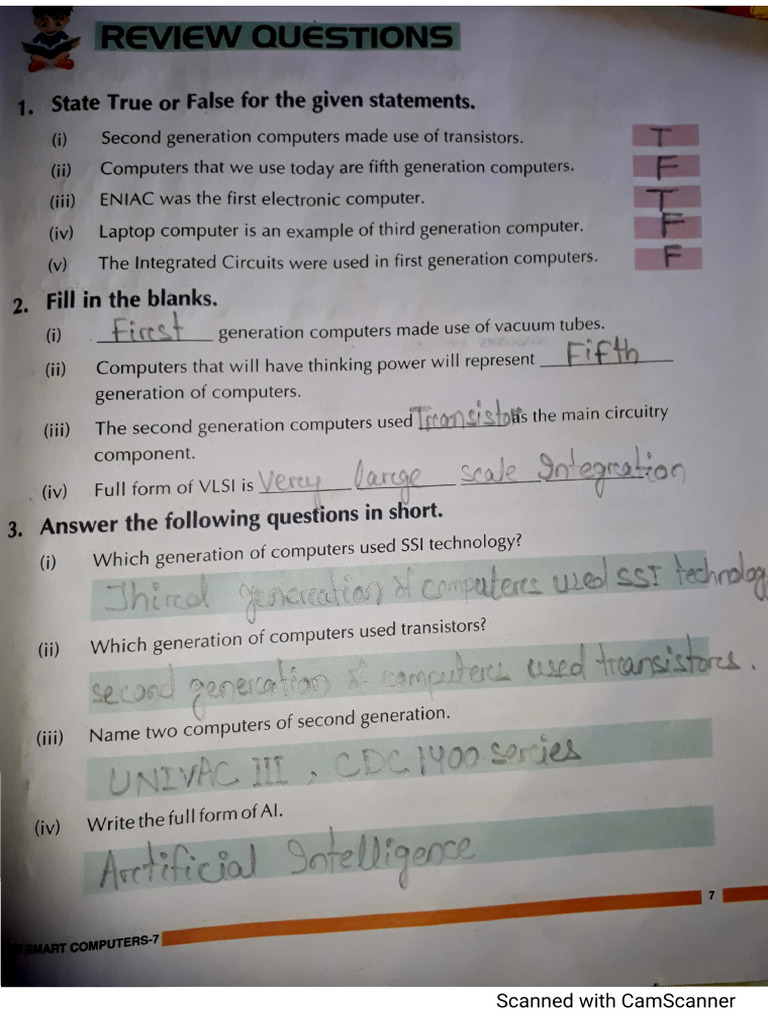 REVIEW QUESTIONS
1. State True or False for the given statements.
(i) Second generation computers made use of transistors. T
(ii) Computers that we use today are fifth generation computers. F
(iii) ENIAC was the first electronic computer. T
(iv) Laptop computer is an example of third generation computer. F
(v) The Integrated Circuits were used in first generation computers. F
2. Fill in the blanks.
(i) First generation computers made use of vacuum tubes.
(ii) Computers that will have thinking power will represent Fifth
generation of computers.
(iii) The second generation computers used Transistors as the main circuitry
component.
(iv) Full form of VLSI is Very large scale Integration
3. Answer the following questions in short.
(i) Which generation of computers used SSI technology?
Third generation of computers used SSI technology
(ii) Which generation of computers used transistors?
second generation of computers used transistors.
(iii) Name two computers of second generation.
UNIVAC III, CDC 1400 series
(iv) Write the full form of AI.
Artificial Intelligence
7
SMART COMPUTERS-7
Scanned with CamScanner